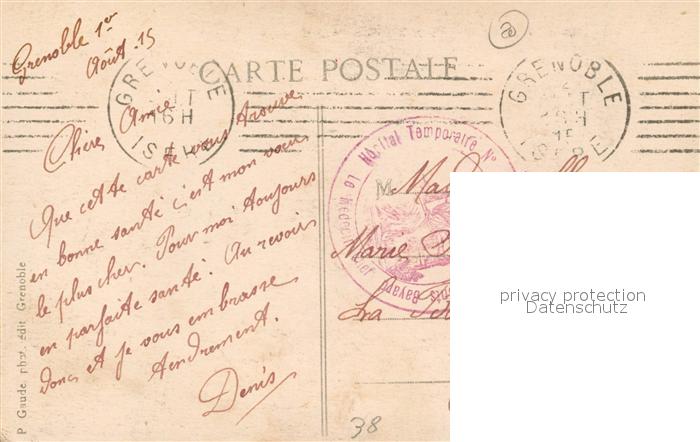 Grenoble 1er
Août. 15
CARTE POSTALE
GRENOBLE
16H
ISERE
GRENOBLE
15
Chère Amie
Que cette carte vous trouve
en bonne santé c'est mon vœux
le plus cher. Pour moi toujours
en parfaite santé. Au revoir
donc et je vous embrasse
tendrement.
Denis
Hôpital Temporaire N°
Le Médecin
Bayard
M
Marie
La
privacy protection
Datenschutz
P. Gaude, phot. édit. Grenoble
38